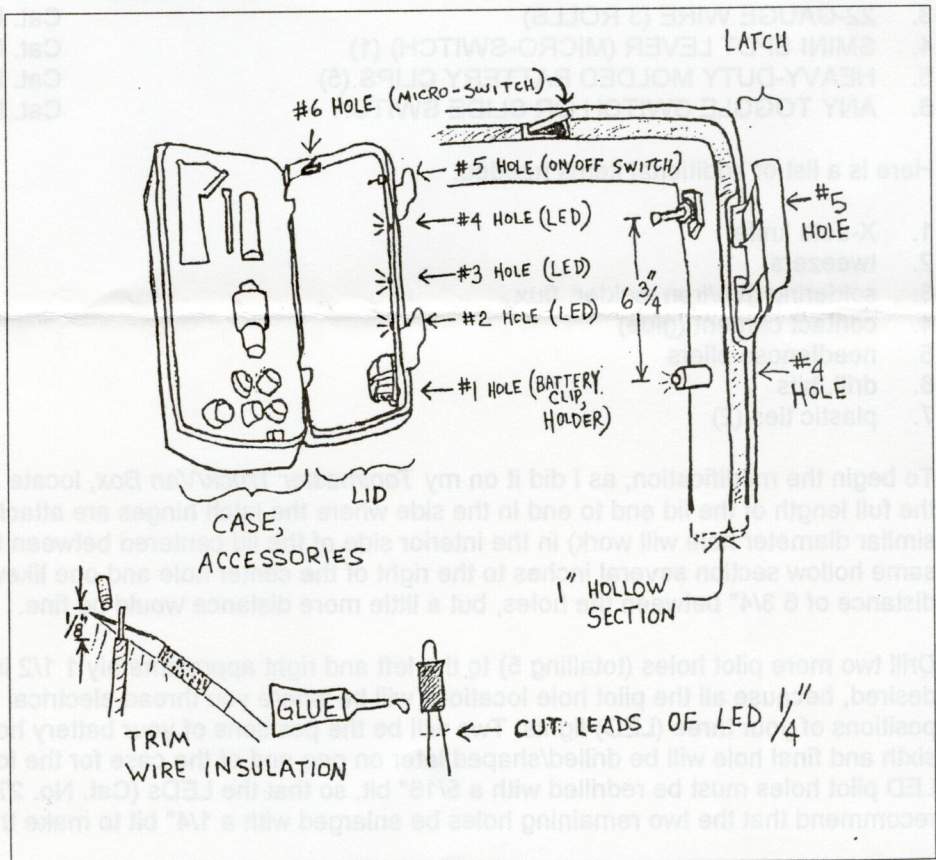 LATCH
#6 HOLE (MICRO-SWITCH)
#5 HOLE (ON/OFF SWITCH)
#4 HOLE (LED)
#3 HOLE (LED)
#2 HOLE (LED)
#1 HOLE (BATTERY
CLIP
HOLDER)
6 3/4"
#5
HOLE
#4
HOLE
LID
CASE,
ACCESSORIES
"HOLLOW"
SECTION
1/8"
GLUE
TRIM
WIRE INSULATION
CUT LEADS OF LED 1/4"